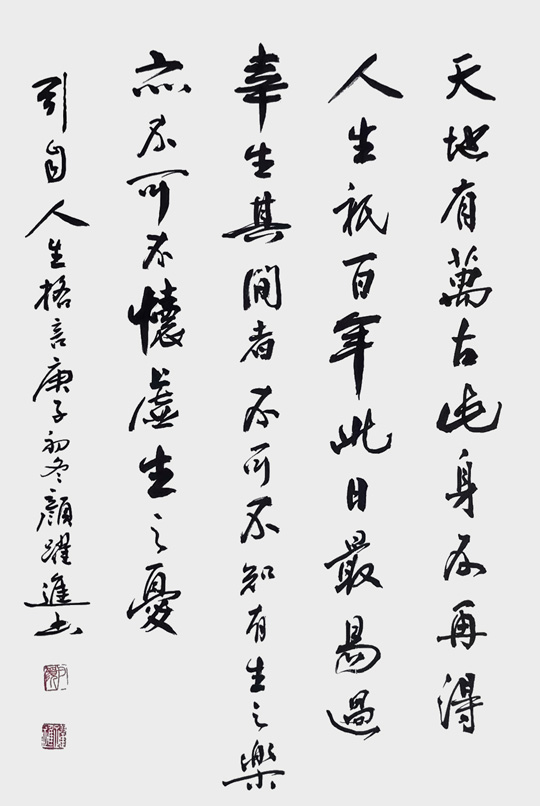 天地有萬古此身不再得
人生祇百年此日最易過
幸生其間者不可不知有生之樂
亦不可不懷虛生之憂
引自人生格言庚子初冬顏躍進書